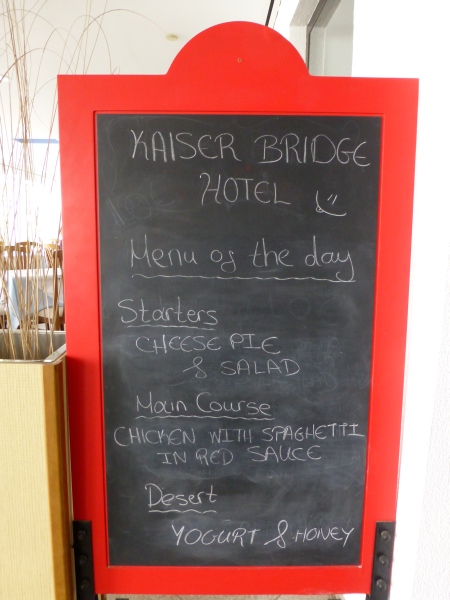 KAISER BRIDGE
HOTEL
Menu of the day
Starters
CHEESE PIE
& SALAD
Main Course
CHICKEN WITH SPAGHETTI
IN RED SAUCE
Desert
YOGURT & HONEY